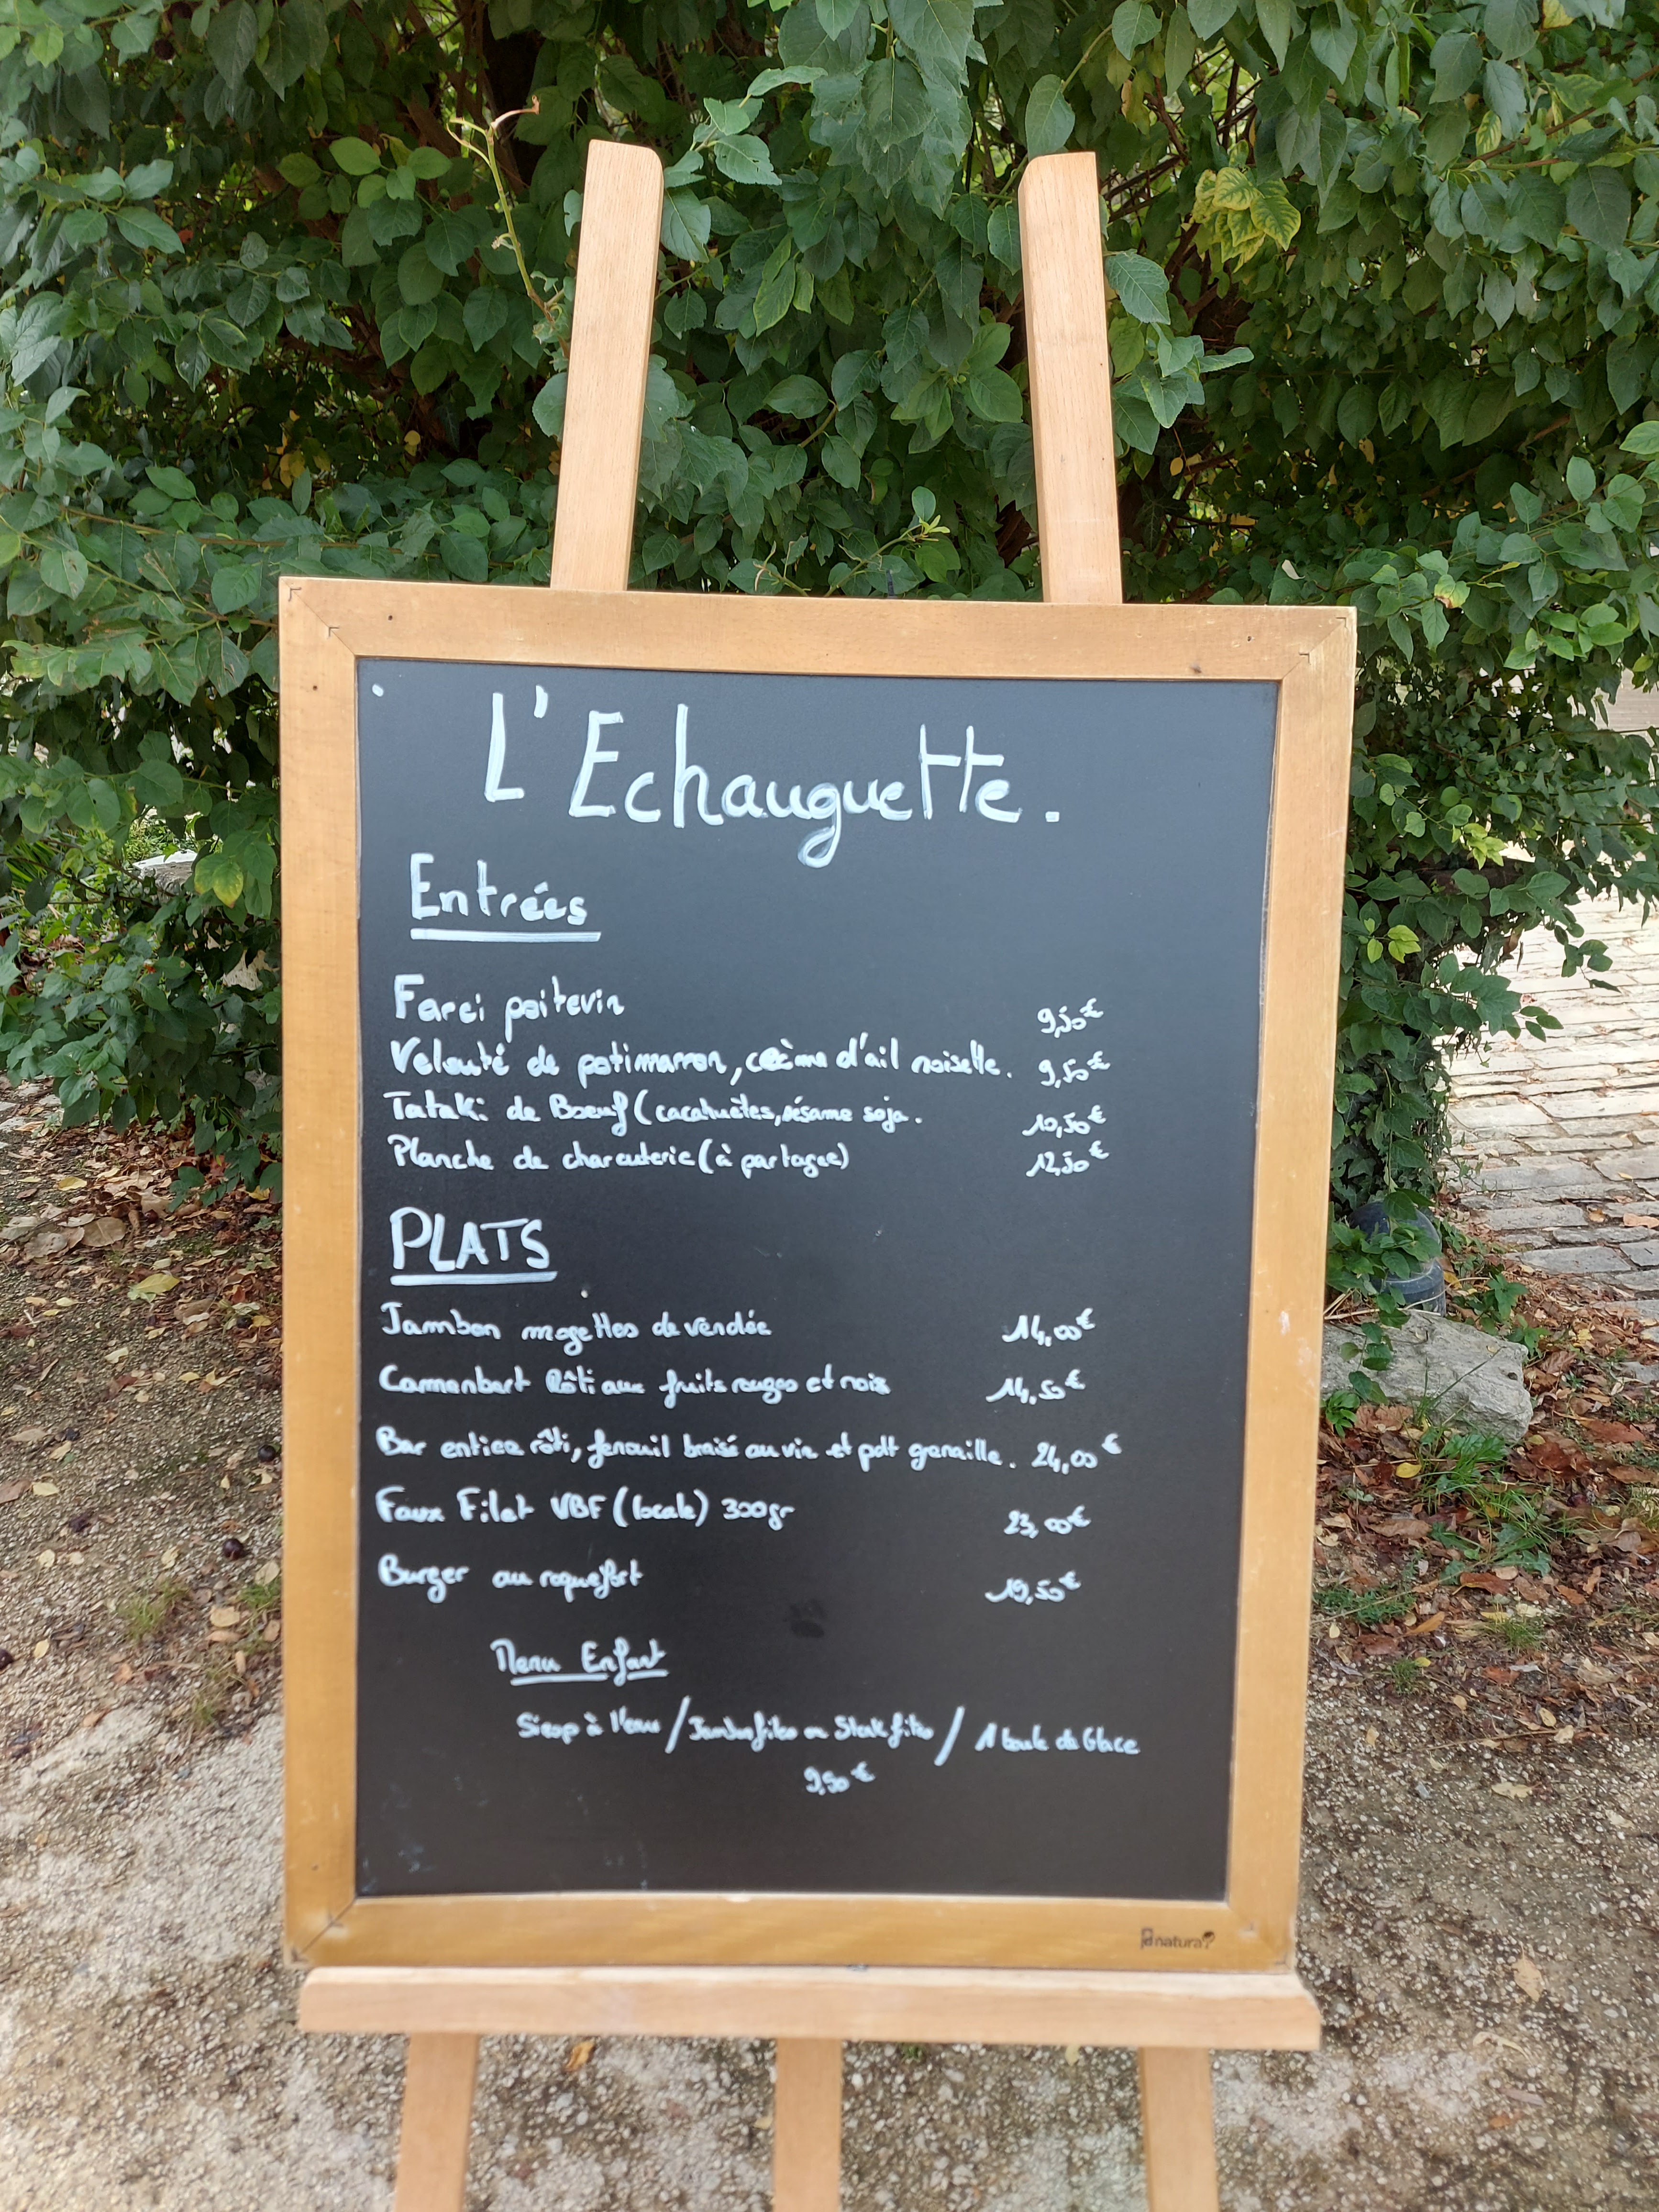 L'Echauguette.
Entrées
Farci poitevin 9,50€
Velouté de potimarron, crème d'ail noisette. 9,50€
Tataki de Boeuf (cacahuètes, sésame soja. 10,50€
Planche de charcuterie (à partager) 12,50€
PLATS
Jambon mogettes de vendée 14,00€
Camembert Rôti aux fruits rouges et noix 14,50€
Bar entier rôti, fenouil braisé au vin et pdt grenaille. 24,00€
Faux Filet VBF (locale) 300gr 23,00€
Burger au roquefort 19,50€
Menu Enfant
Sirop à l'eau / Jambon frites ou Steak frites / 1 boule de Glace
9,50€
natura